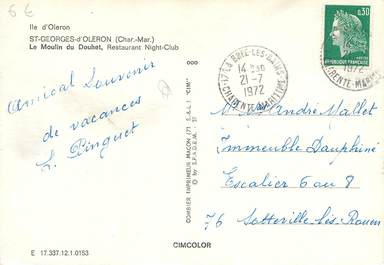 6 €
Ile d'Oleron
ST-GEORGES-d'OLERON (Char.-Mar.)
Le Moulin du Douhet, Restaurant Night-Club
Amical Souvenir
de vacances
L. Pinguet
E 17.337.12.1.0153
COMBIER IMPRIMEUR MACON (71 S.&L.) "CIM"
CIMCOLOR
0,30
REPUBLIQUE FRANÇAISE
17 LA BREE-LES-BAINS
14 H 30
21-7
1972
CHARENTE-MARITIME
1972
André Mallet
Immeuble Dauphiné
Escalier 6 ou 8
76 Sotteville-lès-Rouen